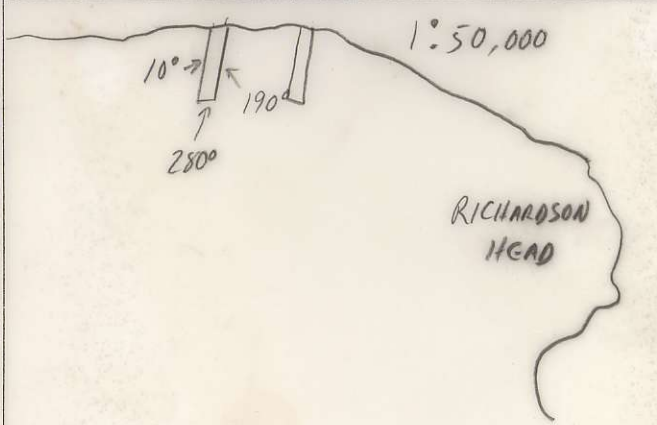 1:50,000
10°
190°
280°
RICHARDSON
HEAD